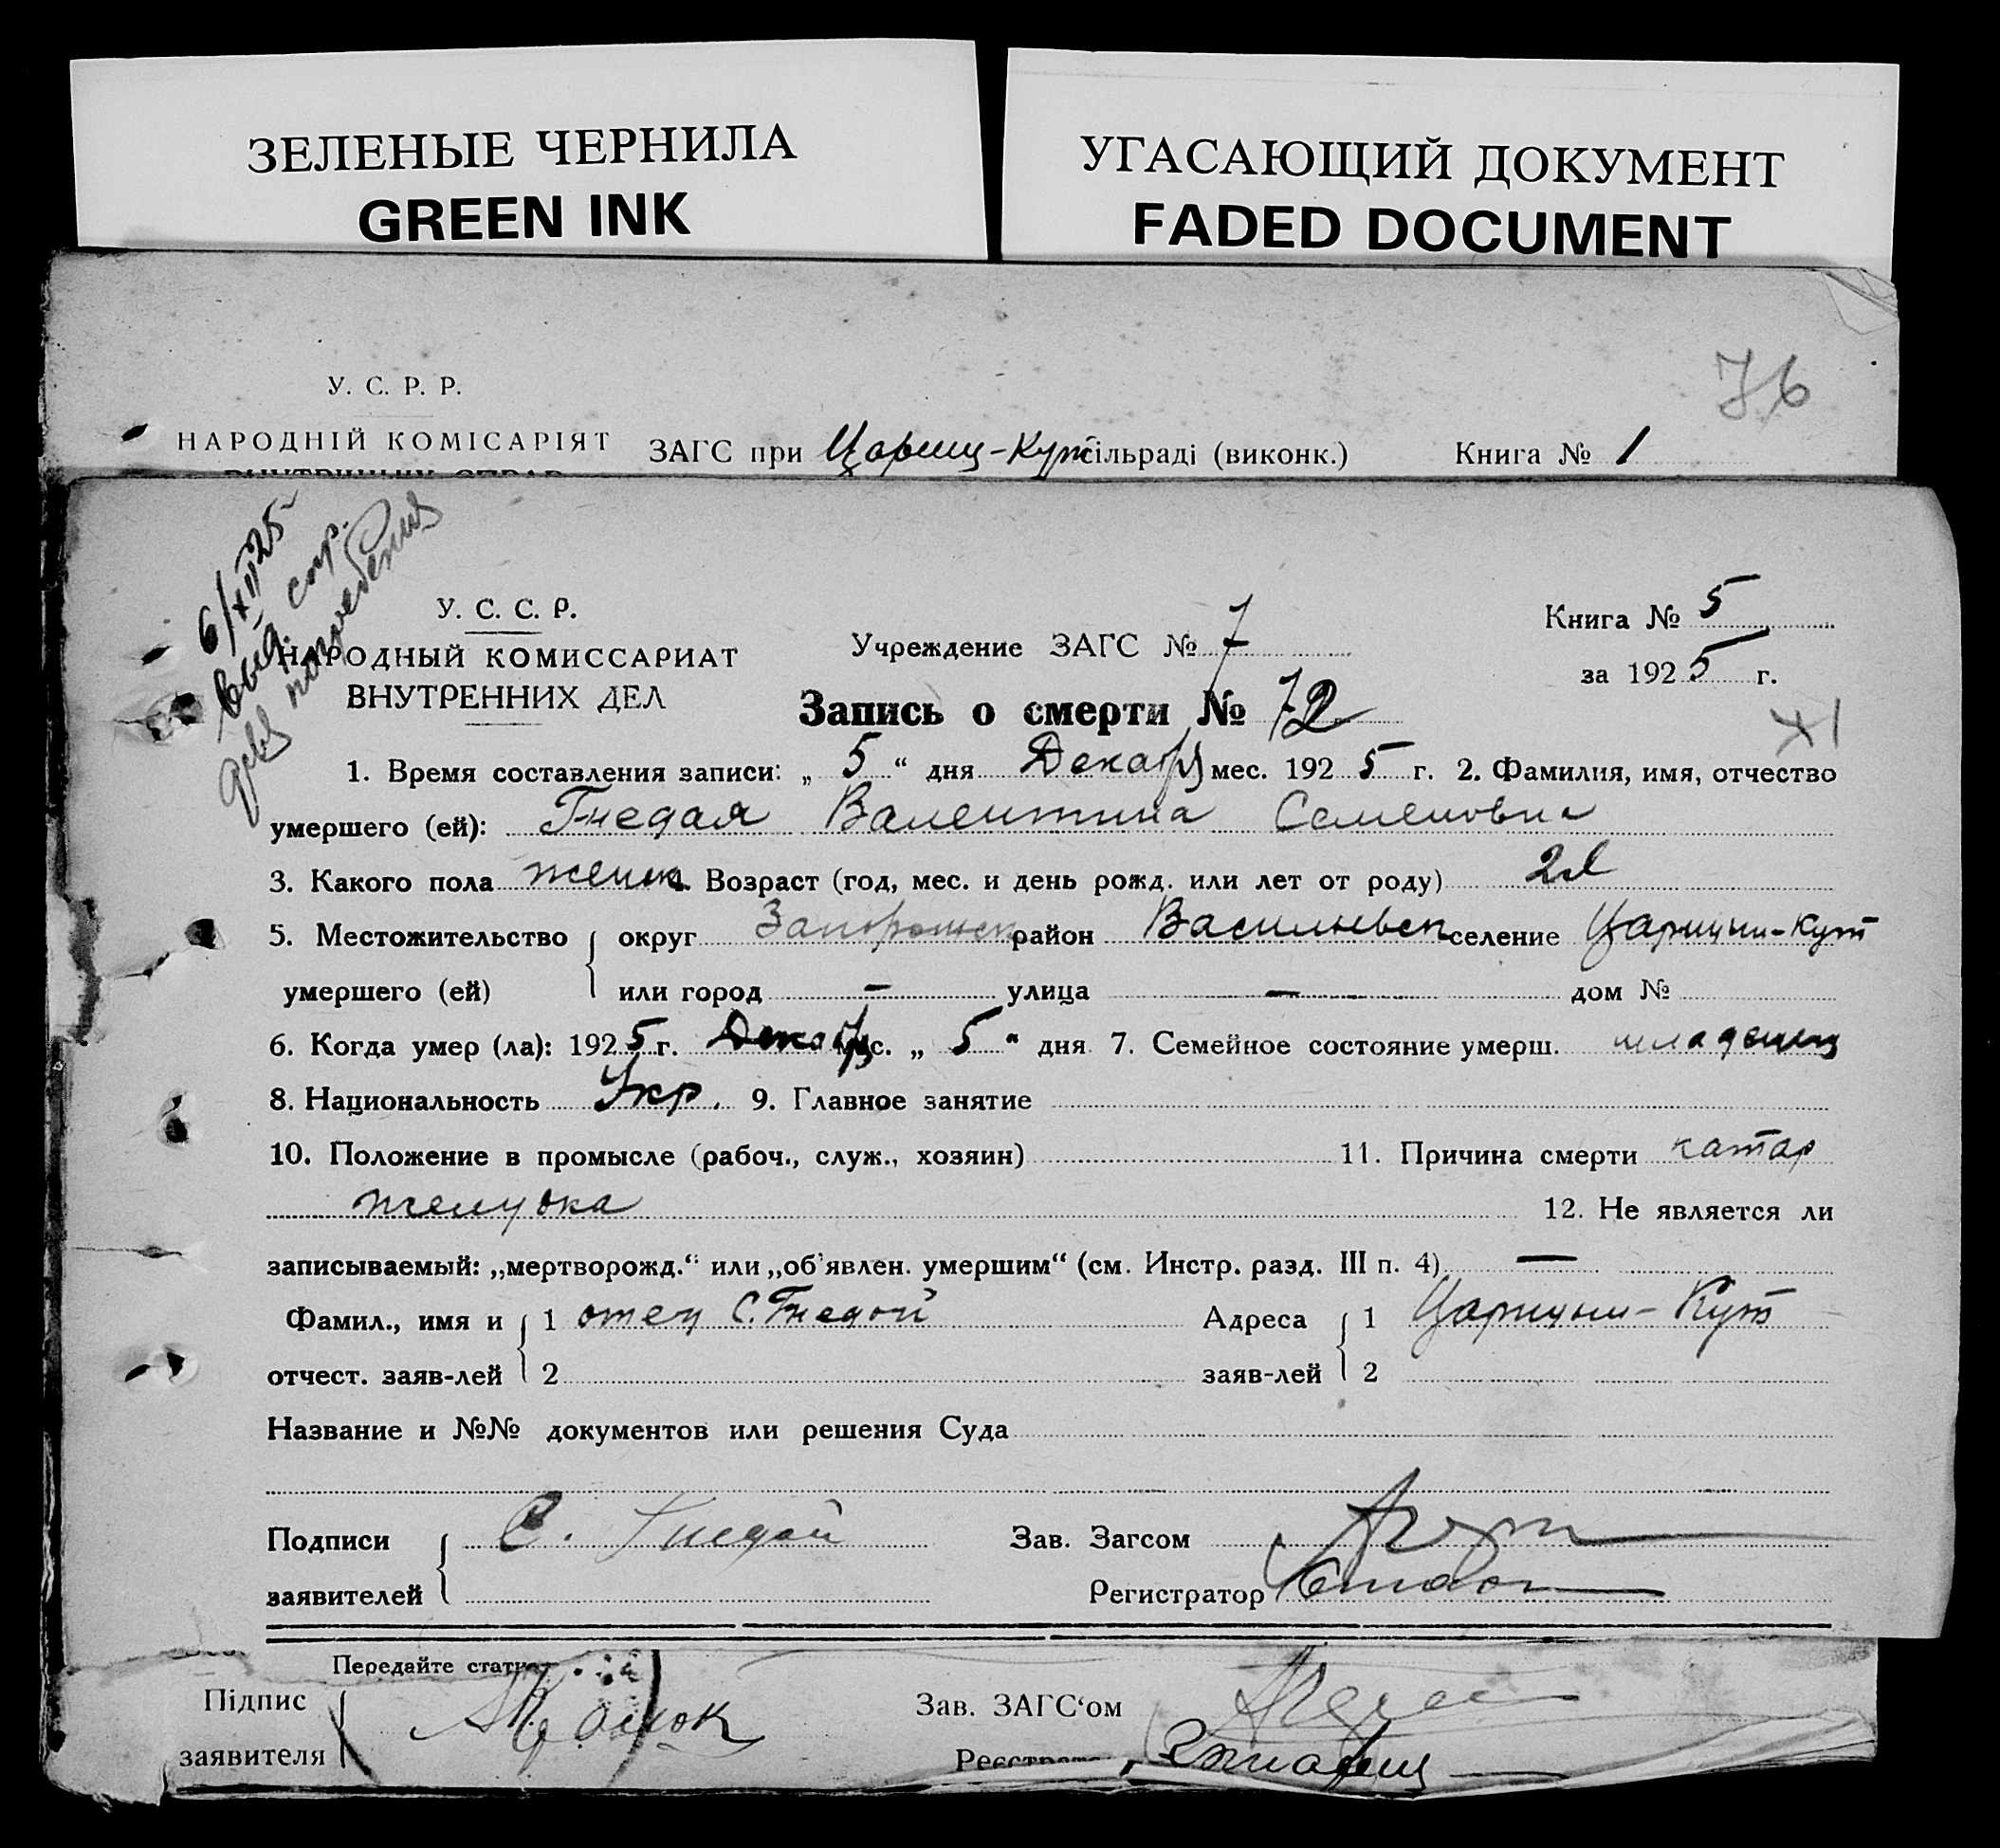 ЗЕЛЕНЫЕ ЧЕРНИЛА
GREEN INK
УГАСАЮЩИЙ ДОКУМЕНТ
FADED DOCUMENT
76
У. С. Р. Р.
НАРОДНІЙ КОМІСАРІЯТ
ЗАГС при Цариц-Кут сільраді (виконк.) Книга № 1
6/XII 25
выд. спр.
для погребения
У. С. С. Р.
НАРОДНЫЙ КОМИССАРИАТ
ВНУТРЕННИХ ДЕЛ
Учреждение ЗАГС № 7
Книга № 5
за 1925 г.
XI
Запись о смерти № 72
1. Время составления записи: „ 5 “ дня Декабр мес. 1925 г. 2. Фамилия, имя, отчество
умершего (ей): Гнедая Валентина Семеновна
3. Какого пола женск 4. Возраст (год, мес. и день рожд. или лет от роду) 2 л
5. Местожительство округ Запорожск район Васильевск селение Царицын-Кут
умершего (ей) или город — улица — дом №
6. Когда умер (ла): 1925 г. Декабр мес. „ 5 “ дня 7. Семейное состояние умерш. младенец
8. Национальность Укр. 9. Главное занятие
10. Положение в промысле (рабоч., служ., хозяин) 11. Причина смерти катар
желудка 12. Не является ли
записываемый: „мертворожд.“ или „об'явлен. умершим“ (см. Инстр. разд. III п. 4) —
Фамил., имя и 1 отец С. Гнедой Адреса 1 Царицын-Кут
отчест. заяв-лей 2 заяв-лей 2
Название и №№ документов или решения Суда
Подписи С. Гнедой Зав. Загсом
заявителей Регистратор
Передайте
Підпис Зав. ЗАГС'ом
заявителя